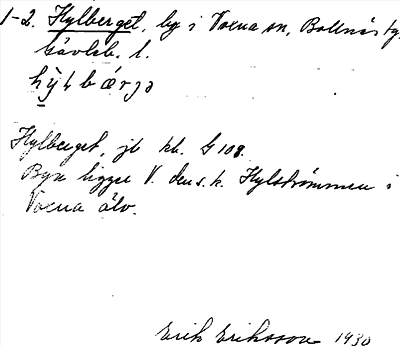 1-2. Hylberget, by i Voxna sn, Bollnäs tg,
Gävleb. l.
hy̆ḷbǽrjə
Hylberget, jb kb. G 108.
Byn ligger V. den s.k. Hylströmmen i
Voxna älv.
Erik Eriksson 1930